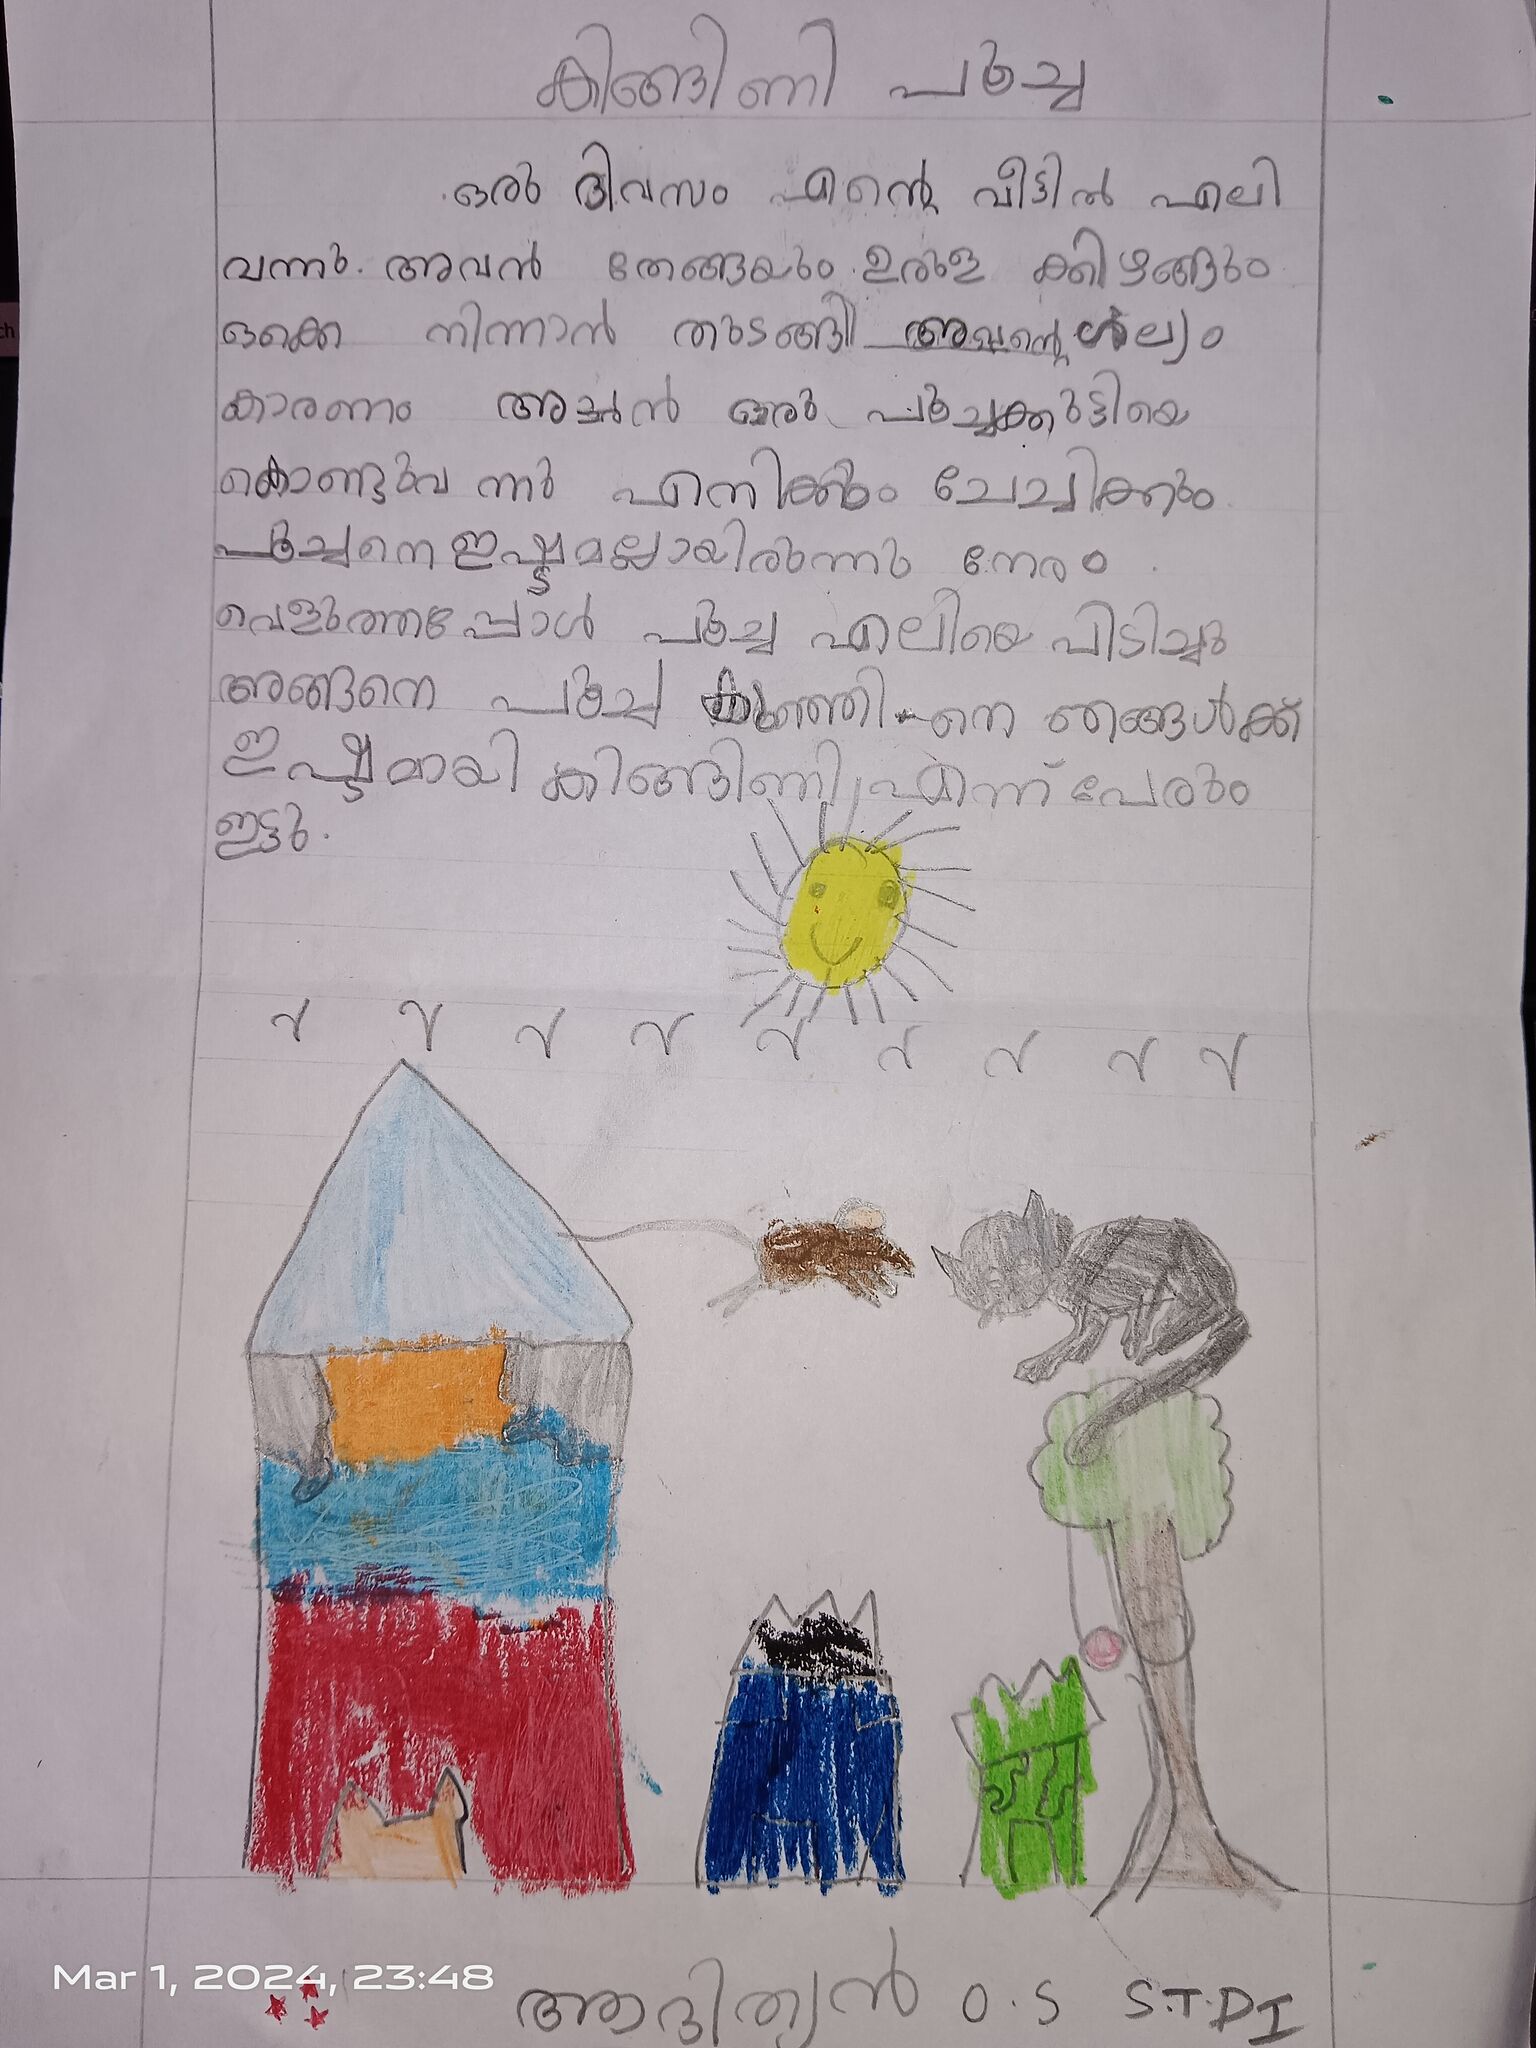 കിങ്ങിണി പൂച്ച
ഒരു ദിവസം എന്റെ വീട്ടിൽ എലി
വന്നു. അവൻ തേങ്ങയും ഉരുള ക്കിഴങ്ങും
ഒക്കെ നിന്നാൻ തുടങ്ങി അവന്റെ ശല്യം
കാരണം അച്ഛൻ ഒരു പൂച്ചക്കുട്ടിയെ
കൊണ്ടുവ ന്നു എനിക്കും ചേച്ചിക്കും
പൂച്ചനെ ഇഷ്ട്ടമല്ലായിരുന്നു നേരം
വെളുത്തപ്പോൾ പൂച്ച എലിയെ പിടിച്ചു
അങ്ങനെ പൂച്ച കുഞ്ഞി-നെ ഞങ്ങൾക്ക്
ഇഷ്ട്ടമായി കിങ്ങിണി എന്ന് പേരും
ഇട്ടു.
Mar 1, 2024, 23:48
ആദിത്യൻ O.S S.T.D I